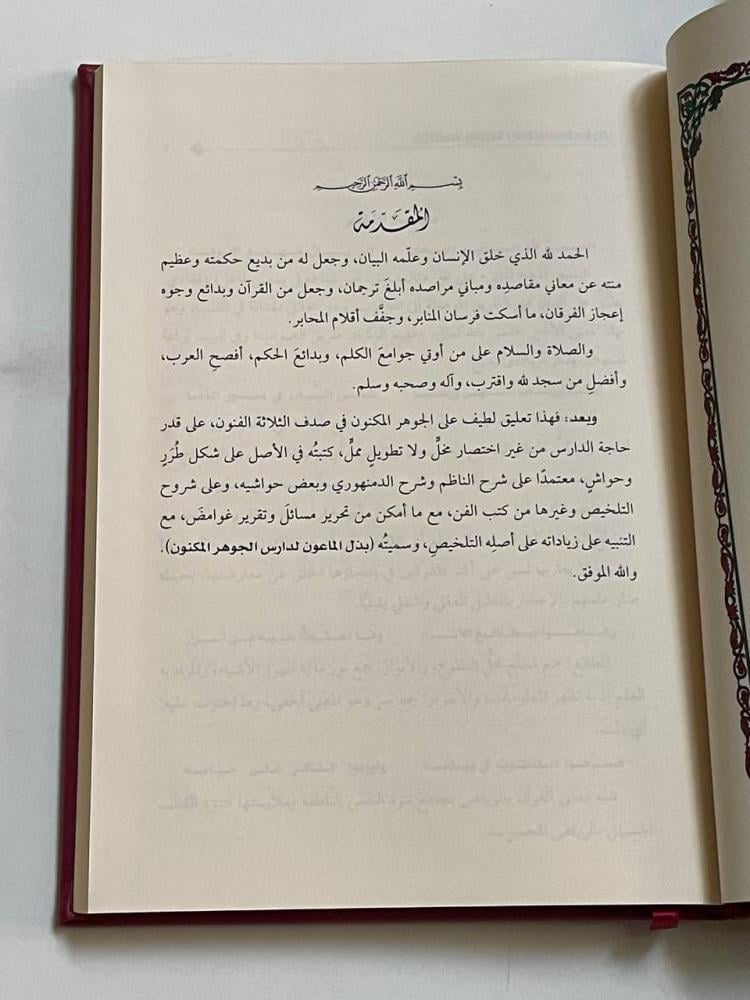 بسم الله الرحمن الرحيم
المقدّمة
الحمد لله الذي خلق الإنسان وعلّمه البيان، وجعل له من بديع حكمته وعظيم
منته عن معاني مقاصدِه ومباني مراصده أبلغَ ترجمان، وجعل من القرآن وبدائع وجوه
إعجاز الفرقان، ما أسكت فرسان المنابر، وجفَّف أقلام المحابر.
والصلاة والسلام على من أوتي جوامعَ الكلم، وبدائعَ الحكم، أفصحِ العرب،
وأفضلِ من سجد لله واقترب، وآله وصحبه وسلم.
وبعد: فهذا تعليق لطيف على الجوهر المكنون في صدف الثلاثة الفنون، على قدر
حاجة الدارس من غير اختصار مخلٍّ ولا تطويلٍ مملٍّ، كتبتُه في الأصل على شكل طُرَرٍ
وحواشٍ، معتمدًا على شرح الناظم وشرح الدمنهوري وبعض حواشيه، وعلى شروح
التلخيص وغيرها من كتب الفن، مع ما أمكن من تحرير مسائلَ وتقرير غوامضَ، مع
التنبيه على زياداته على أصلِه التلخيصِ، وسميتُه (بذل الماعون لدارس الجوهر المكنون).
والله الموفق.